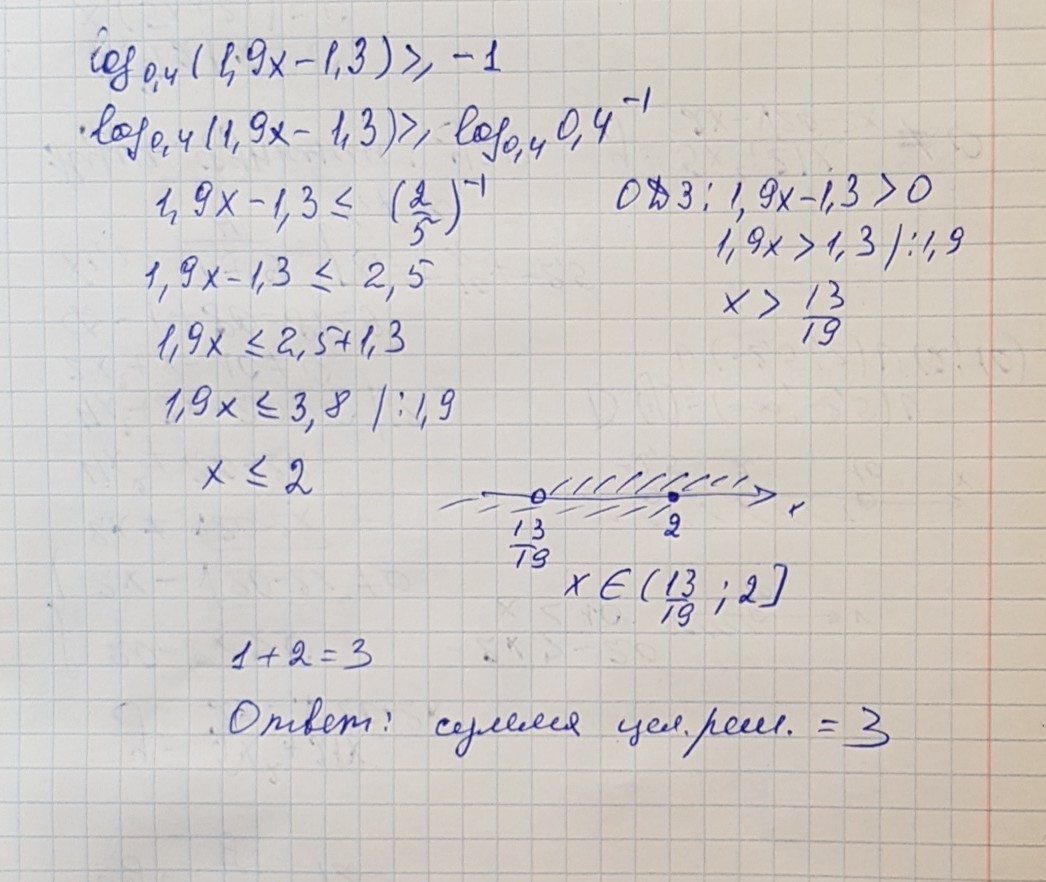 log₀,₄(1,9x-1,3)≥-1
log₀,₄(1,9x-1,3)≥ log₀,₄ 0,4⁻¹
1,9x-1,3≤ (2/5)⁻¹
1,9x-1,3 ≤ 2,5
1,9x ≤2,5+1,3
1,9x ≤3,8 /:1,9
x ≤ 2
ОДЗ: 1,9x-1,3>0
1,9x>1,3 /:1,9
x> 13/19
13/19 2 x
x∈(13/19;2]
1+2=3
Ответ: сумма цел.реш. =3